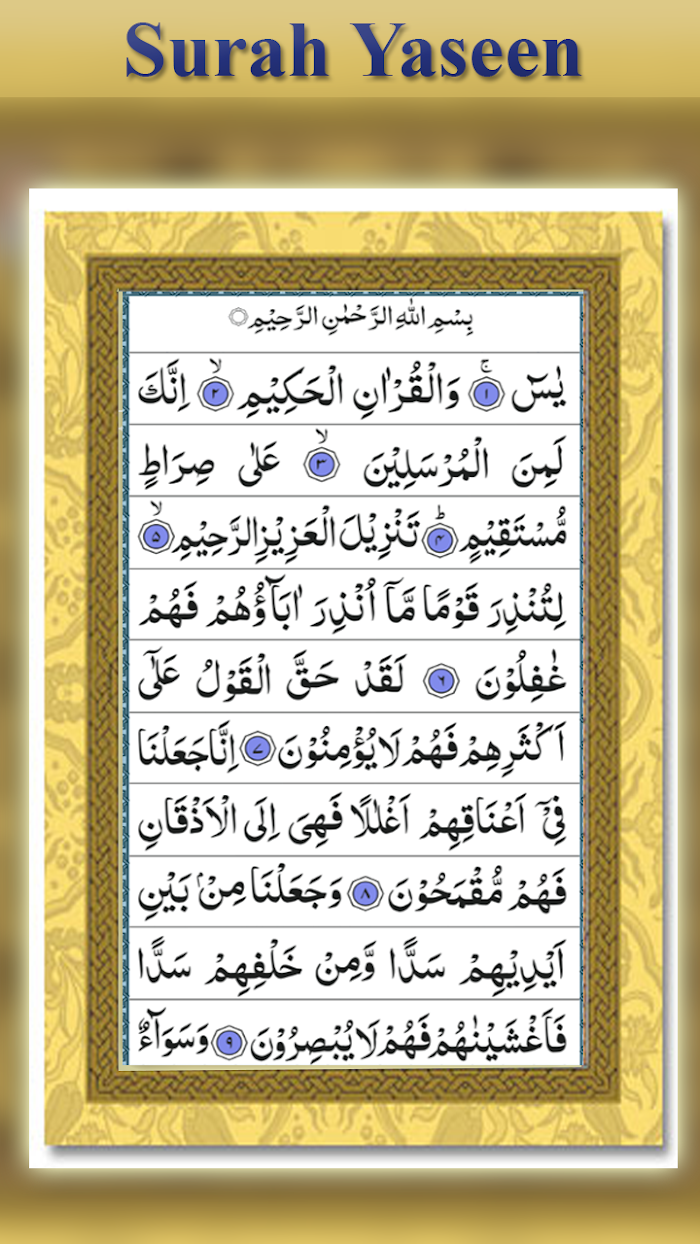 Surah Yaseen
بِسْمِ اللّٰهِ الرَّحْمٰنِ الرَّحِيْمِ ۝
يٰسٓ ۚ﴿۱﴾ وَالْقُرْاٰنِ الْحَكِيْمِ ۙ﴿۲﴾ اِنَّكَ
لَمِنَ الْمُرْسَلِيْنَ ۙ﴿۳﴾ عَلٰى صِرَاطٍ
مُّسْتَقِيْمٍ ؕ﴿۴﴾ تَنْزِيْلَ الْعَزِيْزِ الرَّحِيْمِ ۙ﴿۵﴾
لِتُنْذِرَ قَوْمًا مَّاۤ اُنْذِرَ اٰبَآؤُهُمْ فَهُمْ
غٰفِلُوْنَ ﴿۶﴾ لَقَدْ حَقَّ الْقَوْلُ عَلٰۤى
اَكْثَرِهِمْ فَهُمْ لَا يُؤْمِنُوْنَ ﴿۷﴾ اِنَّا جَعَلْنَا
فِىْۤ اَعْنَاقِهِمْ اَغْلٰلًا فَهِىَ اِلَى الْاَذْقَانِ
فَهُمْ مُّقْمَحُوْنَ ﴿۸﴾ وَجَعَلْنَا مِنْۢ بَيْنِ
اَيْدِيْهِمْ سَدًّا وَّمِنْ خَلْفِهِمْ سَدًّا
فَاَغْشَيْنٰهُمْ فَهُمْ لَا يُبْصِرُوْنَ ﴿۹﴾ وَسَوَآءٌ